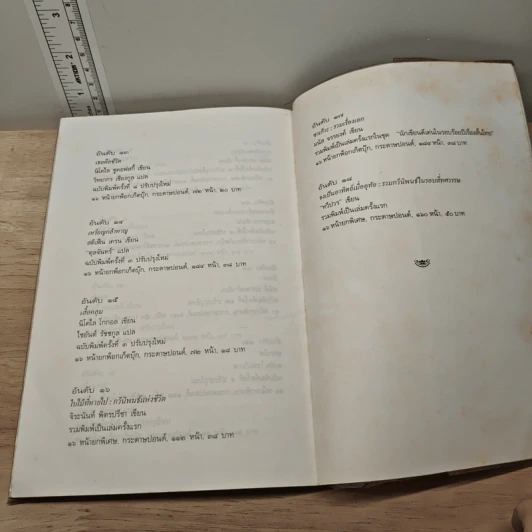 อันดับ ๑๓
เชลศักดิ์ชีวิต
นิโคไล ชูคอฟสกี้ เขียน
วิทยากร เชียงกูล แปล
ฉบับพิมพ์ครั้งที่ ๘ ปรับปรุงใหม่
๑๖ หน้ายกพ็อกเก็ตบุ๊ก, กระดาษปอนด์, ๗๒ หน้า, ๒๐ บาท
อันดับ ๑๔
เหรียญกล้าหาญ
สตีเฟ่น เครน เขียน
"จุลจันทร์" แปล
ฉบับพิมพ์ครั้งที่ ๓ ปรับปรุงใหม่
๑๖ หน้ายกพ็อกเก็ตบุ๊ก, กระดาษปอนด์, ๑๘๔ หน้า, ๓๘ บาท
อันดับ ๑๕
เสื้อคลุม
นิโคไล โกกอล เขียน
ไชยันต์ รัชชกูล แปล
ฉบับพิมพ์ครั้งที่ ๓ ปรับปรุงใหม่
๑๖ หน้ายกพ็อกเก็ตบุ๊ก, กระดาษปอนด์, ๗๒ หน้า, ๑๘ บาท
อันดับ ๑๖
ใบไม้ที่หายไป : กวีนิพนธ์แห่งชีวิต
จิระนันท์ พิตรปรีชา เขียน
รวมพิมพ์เป็นเล่มครั้งแรก
๑๖ หน้ายกพิเศษ, กระดาษปอนด์, ๑๑๒ หน้า, ๓๘ บาท
อันดับ ๑๗
มนัส จรรยงค์ เขียน
รวมพิมพ์เป็นเล่มครั้งแรกในชุด "นักเขียนดีเด่นในรอบร้อยปีเรื่องสั้นไทย"
๑๖ หน้ายกพ็อกเก็ตบุ๊ก, กระดาษปอนด์, ๑๘๔ หน้า, ๓๘ บาท
อันดับ ๑๘
จงเป็นอาทิตย์เมื่ออุทัย : รวมกวีนิพนธ์ในรอบสี่ทศวรรษ
"ทวีปวร" เขียน
รวมพิมพ์เป็นเล่มครั้งแรก
๑๖ หน้ายกพิเศษ, กระดาษปอนด์, ๑๖๐ หน้า, ๕๐ บาท
1
2
3